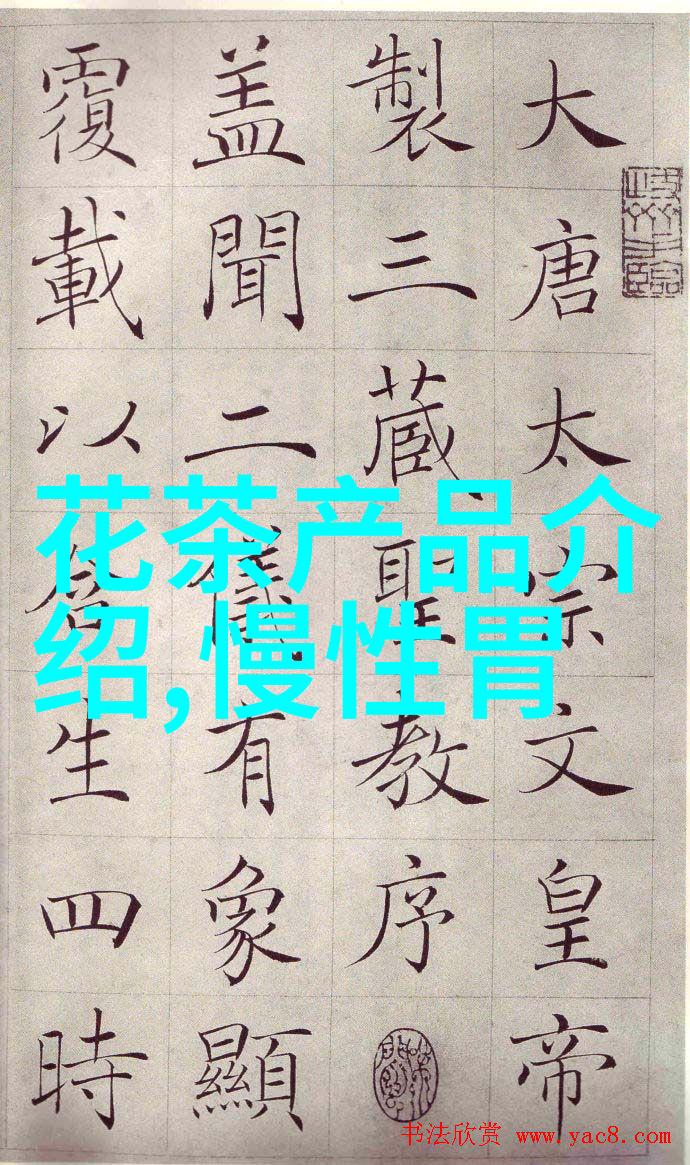 大唐太宗文皇帝
製三蔵聖教序
盖聞二儀有象顯
覆載以含生四時
花茶产品介
绍,慢性胃
书法欣赏 www.yac8.com